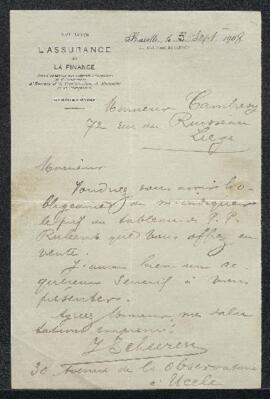 L'ASSURANCE
ET
LA FINANCE
Bruxelles, le 5 Sept 1908
Monsieur Cambresy
72 rue du Ruisseau
Liège
Monsieur
Voudriez vous avoir l'o-
bligeance de m'indiquer
le prix du tableau de P. P.
Rubens que vous offrez en
vente.
J'aurais bien un ac-
quéreur sérieux à vous
présenter.
Agréez Monsieur mes salu-
tations empressées
30 Avenue de l'Observatoire
à Uccle